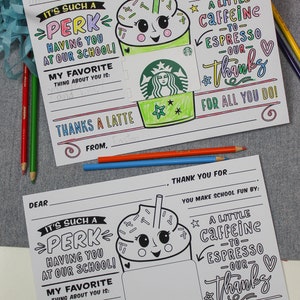 IT'S SUCH A
PERK
HAVING YOU
AT OUR SCHOOL!
MY FAVORITE
THING ABOUT YOU IS:
A LITTLE
CAFFEINE
TO
ESPRESSO
OUR
thanks
THANKS A LATTE
FOR ALL YOU DO!
FROM,
DEAR
THANK YOU FOR
IT'S SUCH A
PERK
HAVING YOU
AT OUR SCHOOL!
MY FAVORITE
THING ABOUT YOU IS:
YOU MAKE SCHOOL FUN BY:
A LITTLE
CAFFEINE
TO
ESPRESSO
OUR
thanks